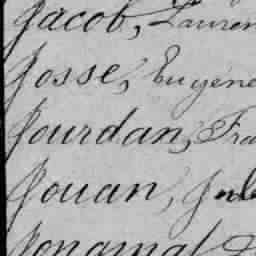 Jacob, Lauren
Josse, Eugene
Jourdan, Fra
Jouan, Jule